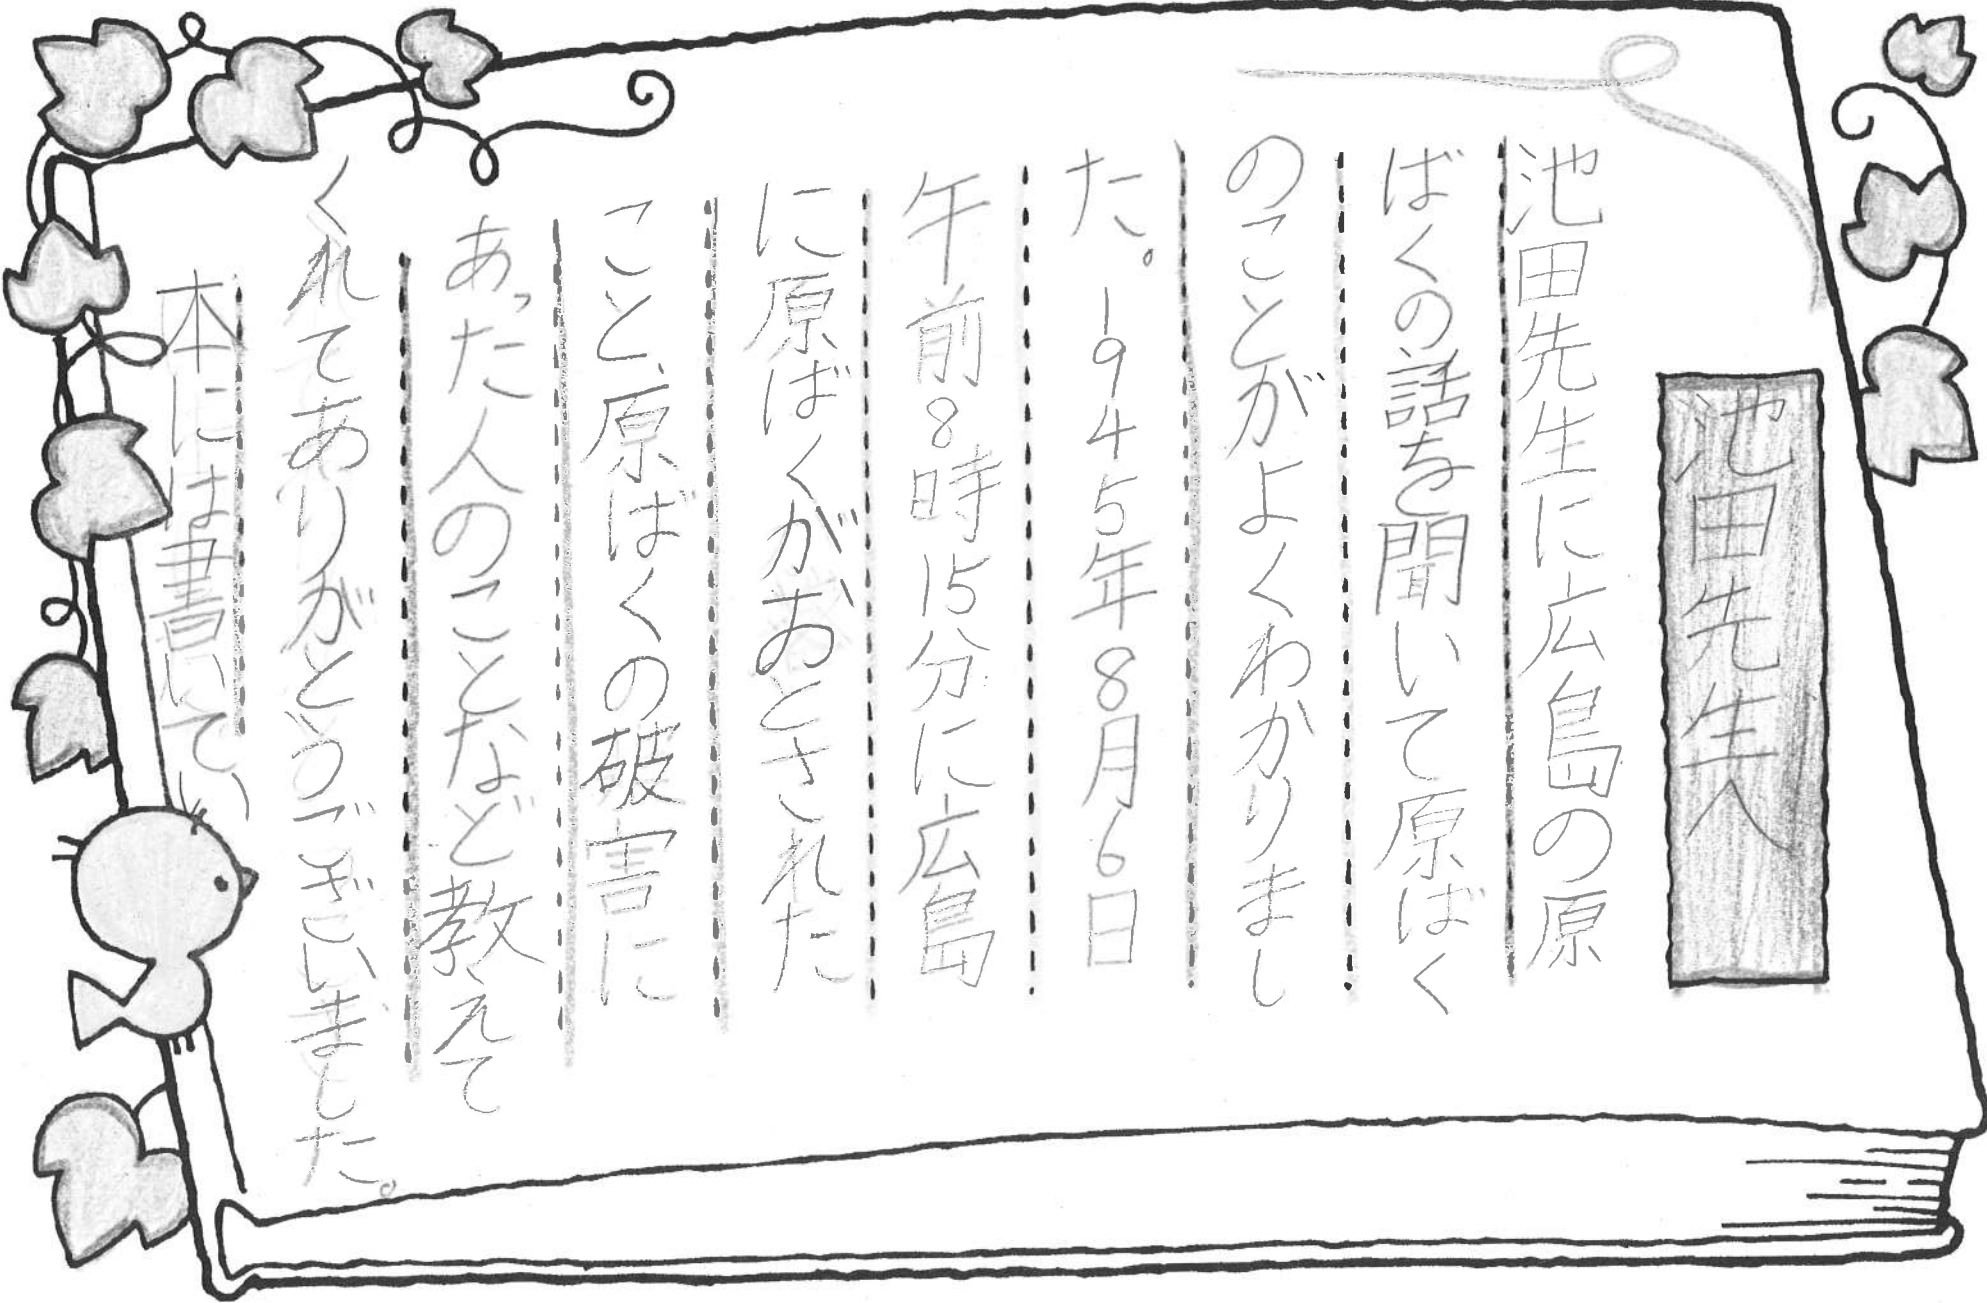 池田先生へ
池田先生に広島の原
ばくの話を聞いて原ばく
のことがよくわかりまし
た。1945年8月6日
午前8時15分に広島
に原ばくがおとされた
こと、原ばくの破害に
あった人のことなど教えて
くれてありがとうございました。
本には書いて、